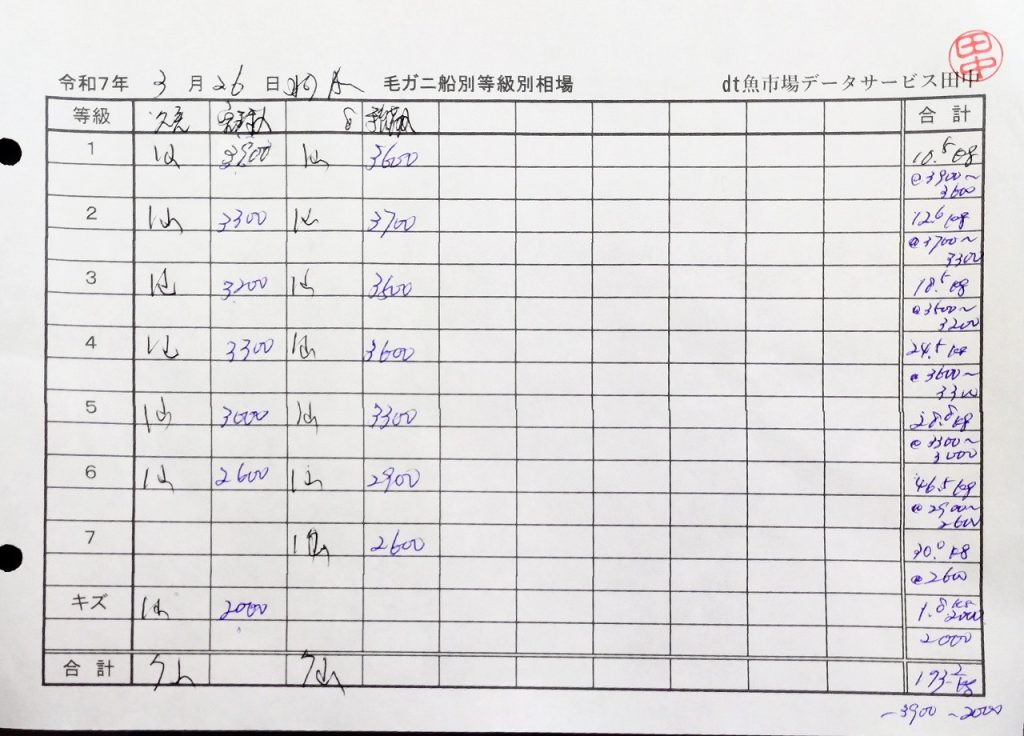 田中
令和7年 3月26日 毛ガニ船別等級別相場 dt魚市場データサービス田中
等級 合計
1 1山 3900 1山 3600 10.5kg
@3900〜
3600
2 1山 3300 1山 3700 12.6kg
@3700〜
3300
3 1山 3200 1山 3500 18.5kg
@3500〜
3200
4 1山 3300 1山 3600 24.5kg
@3600〜
3300
5 1山 3000 1山 3300 28.8kg
@3300〜
3000
6 1山 2600 1山 2900 46.5kg
@2900〜
2600
7 1山 2600 30.0kg
@2600
キズ 1山 2000 1.8kg
2000
2000
合計 7山 7山 173.2kg
3900〜2000